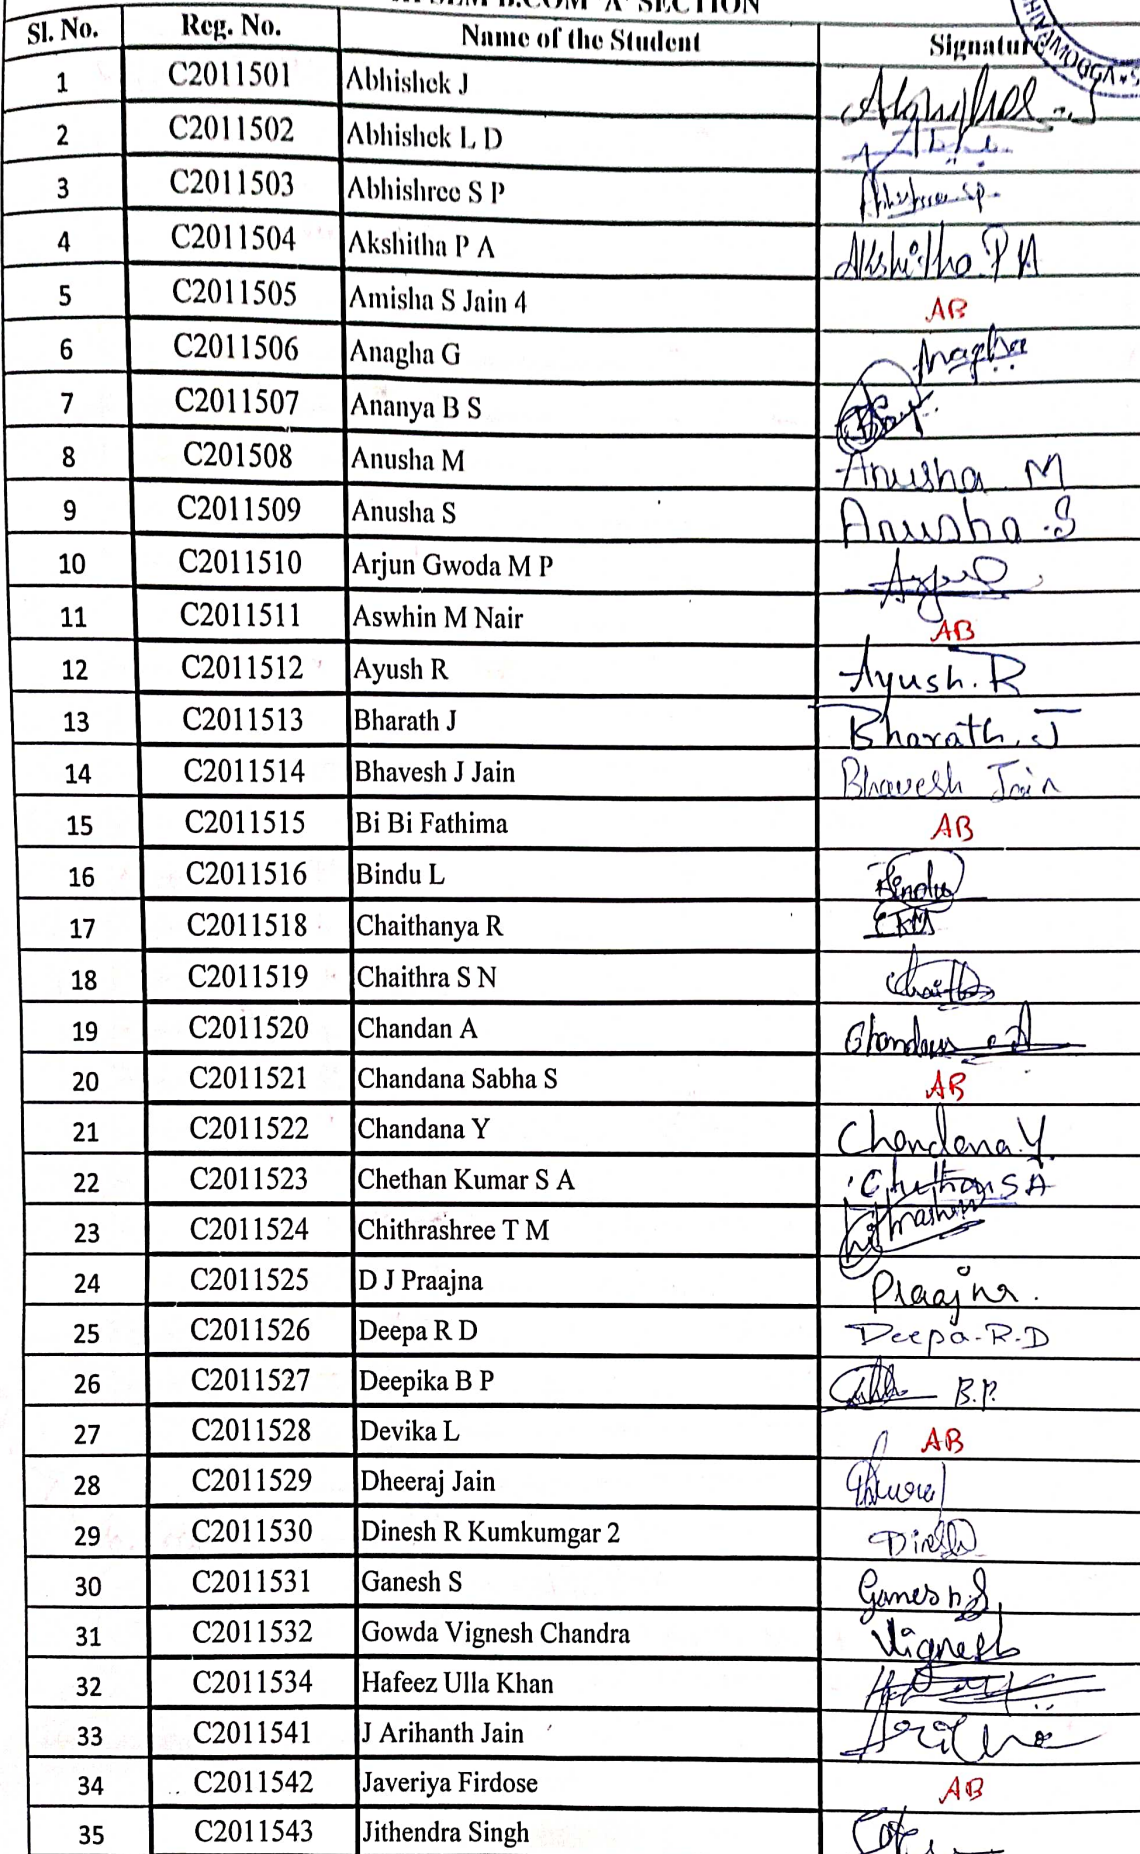 SEM B.COM 'A' SECTION
Sl. No. Reg. No. Name of the Student Signature
HIVAMOGGA
1 C2011501 Abhishek J
2 C2011502 Abhishek L D
3 C2011503 Abhishree S P
4 C2011504 Akshitha P A Akshitha. P A
5 C2011505 Amisha S Jain 4 AB
6 C2011506 Anagha G Anagha
7 C2011507 Ananya B S
8 C201508 Anusha M Anusha M
9 C2011509 Anusha S Anusha .S
10 C2011510 Arjun Gwoda M P
11 C2011511 Aswhin M Nair AB
12 C2011512 Ayush R Ayush. R
13 C2011513 Bharath J Bharath. J
14 C2011514 Bhavesh J Jain Bhavesh Jain
15 C2011515 Bi Bi Fathima AB
16 C2011516 Bindu L Bindu
17 C2011518 Chaithanya R
18 C2011519 Chaithra S N
19 C2011520 Chandan A
20 C2011521 Chandana Sabha S AB
21 C2011522 Chandana Y Chandana. Y
22 C2011523 Chethan Kumar S A Chethan S A
23 C2011524 Chithrashree T M
24 C2011525 D J Praajna Praajna.
25 C2011526 Deepa R D Deepa. R. D
26 C2011527 Deepika B P B.P.
27 C2011528 Devika L AB
28 C2011529 Dheeraj Jain
29 C2011530 Dinesh R Kumkumgar 2 Dinesh
30 C2011531 Ganesh S Ganesh. S
31 C2011532 Gowda Vignesh Chandra Vignesh
32 C2011534 Hafeez Ulla Khan
33 C2011541 J Arihanth Jain
34 C2011542 Javeriya Firdose AB
35 C2011543 Jithendra Singh